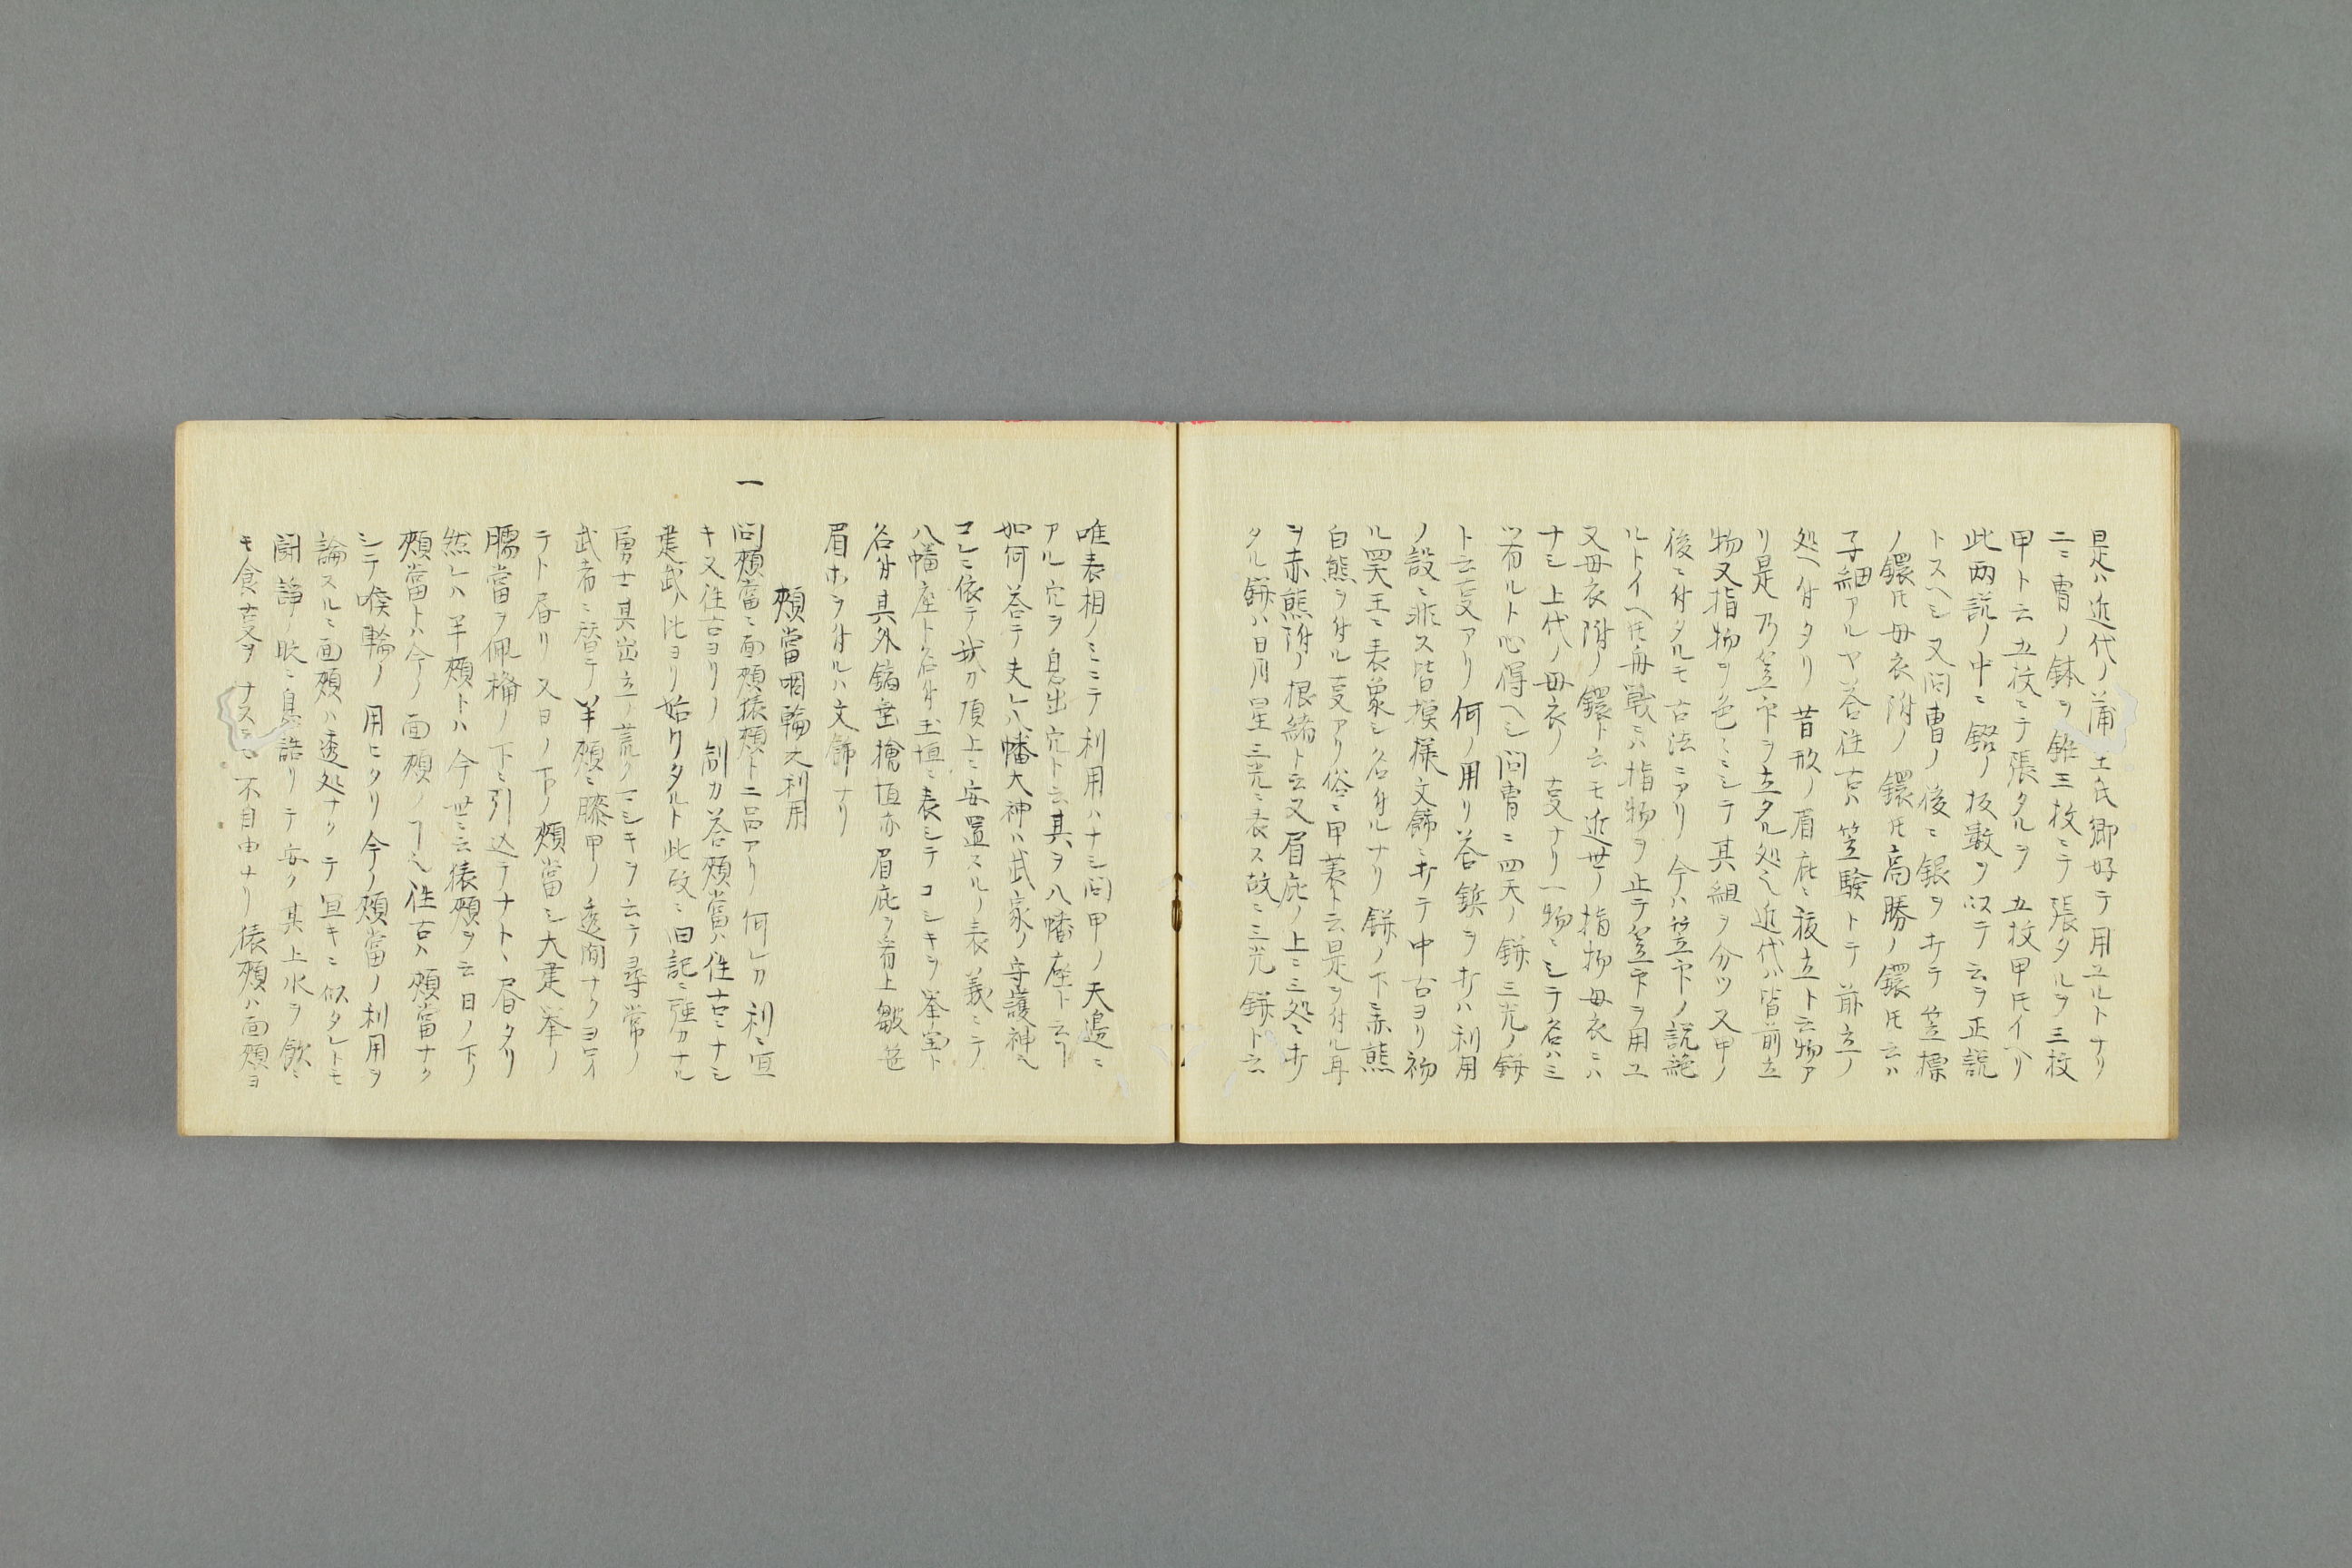 是ハ近代ノ蒲生氏郷好テ用ユルトナリ
二ニ冑ノ鉢ヲ錐三枚ニテ張タルヲ三枚
甲ト云五枚ニテ張タルヲ五枚甲氏イヘリ
此両説ノ中ニ錣ノ板数ヲ以テ云ヲ正説
トスヘシ又問冑ノ後ニ鐶ヲ打テ笠標
ノ鐶氏母衣附ノ鐶氏高勝ノ鐶氏云ハ
子細アルヤ答往古ハ笠験トテ前立ノ
処ヘ付タリ昔形ノ眉庇ニ祓立ト云物ア
リ是乃笠印ヲ立タル処也近代ハ皆前立
物又指物ヲ色々ニシテ其組ヲ分ツ又甲ノ
後ニ付タルモ古法ニアリ今ハ笠印ノ説絶
ルトイヘ氏毎戦ニハ指物ヲ止テ笠印ヲ用ユ
又母衣附ノ鐶ト云モ近世ノ指物母衣ニハ
ナシ上代ノ母衣ノ叓ナリ一物ニシテ名ハミ
ツ有ルト心得ヘシ問冑ニ四天ノ鋲三光ノ鋲
ト云叓アリ何ノ用リ答鋲ヲ打ハ利用
ノ設ニ非ス皆模様文飾ニ打テ中古ヨリ初
ル四天王ニ表象シ名付ルナリ鋲ノ下ニ赤熊
白熊ヲ付ル叓アリ俗ニ甲蓑ト云是ヲ付ル耳
ヲ赤熊附ノ根緒ト云又眉庇ノ上ニ三処ニ打
タル鋲ハ日月星三光ニ表ス故ニ三光鋲ト云
唯表相ノミニテ利用ハナシ問甲ノ天邉ニ
アル穴ヲ息出穴ト云其ヲ八幡座ト云ヿ
如何答テ夫レ八幡大神ハ武家ノ守護神也
コレニ依テ我カ頂上ニ安置スルノ表義ニテ
八幡座ト名付玉垣ニ表シテコシキヲ峯牢ト
名付其外錏垂檜垣亦眉庇ヲ着上皺笆
眉ホヲ付ルハ文飾ナリ
頬當咽輪之利用
一 問頬當ニ面頬猿頬ト二品アリ何レカ利ニ宜
キ又往古ヨリノ制カ答頬當ハ往古ニナシ
建武ノ比ヨリ始リタルト此故ニ旧記ニ強カナル
勇士其出立ノ荒々シキヲ云テ尋常ノ
武者ニ替テ半頬ニ膝甲ノ透間ナクヨロイ
テト昏リ又ヨノ下ノ頬當シ大建挙ノ
臑當ヲ佩楯ノ下ニ引込テナトヽ昏タリ
然レハ半頬トハ今世ニ云猿頬ヲ云日ノ下ノ
頬當トハ今ノ面頬ノヿ也往古ハ頬當ナク
シテ喉輪ノ用ヒタリ今ノ頬當ノ利用ヲ
論スルニ面頬ハ透処ナクテ宜キニ似タレトモ
闘諍ノ時ニ息詰リテ安ク其上水ヲ飲ニ
モ食叓ヲナスニモ不自由ナリ猿頬ハ面頬ヨ